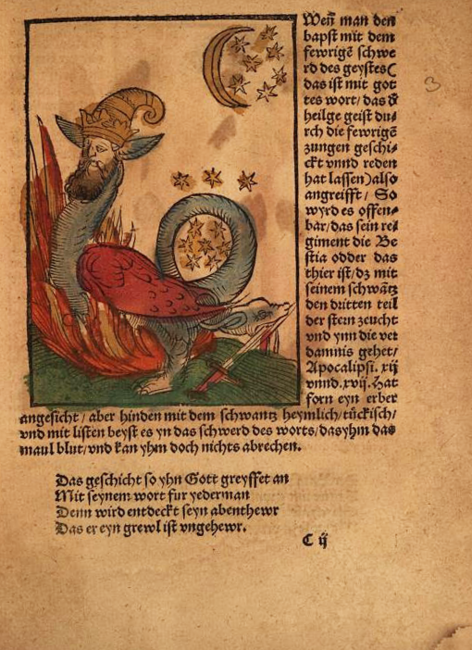 Weñ man den
bapst mit dem
fewrigẽ schwe
rd des geystes(
das ist mit got
tes wort/ das d͛
heilge geist du⸗
rch die fewrigẽ
zungen geschi⸗
ckt vnnd reden
hat lassen) also
angreifft/ So
wyrd es offen⸗
bar/ das sein re⸗
giment die Be
stia odder das
thier ist/ dz mit
seinem schwãtz
den dritten teil
der stern zeucht
vnd ynn die ver
damnis gehet/
Apocalipsi. xij
vnnd. xvij. Hat
forn eyn erber
angesicht/ aber hinden mit dem schwantz heymlich/ tückisch/
vnd mit listen beyst es yn das schwerd des worts/ das yhm das
maul blut/ vnd kan yhm doch nichts abrechen.
Das geschicht so yhn Gott greyffet an
Mit seynem wort fur yederman
Denn wird entdeckt seyn abenthewr
Das er eyn grewl ist vngehewr.
C ij
3